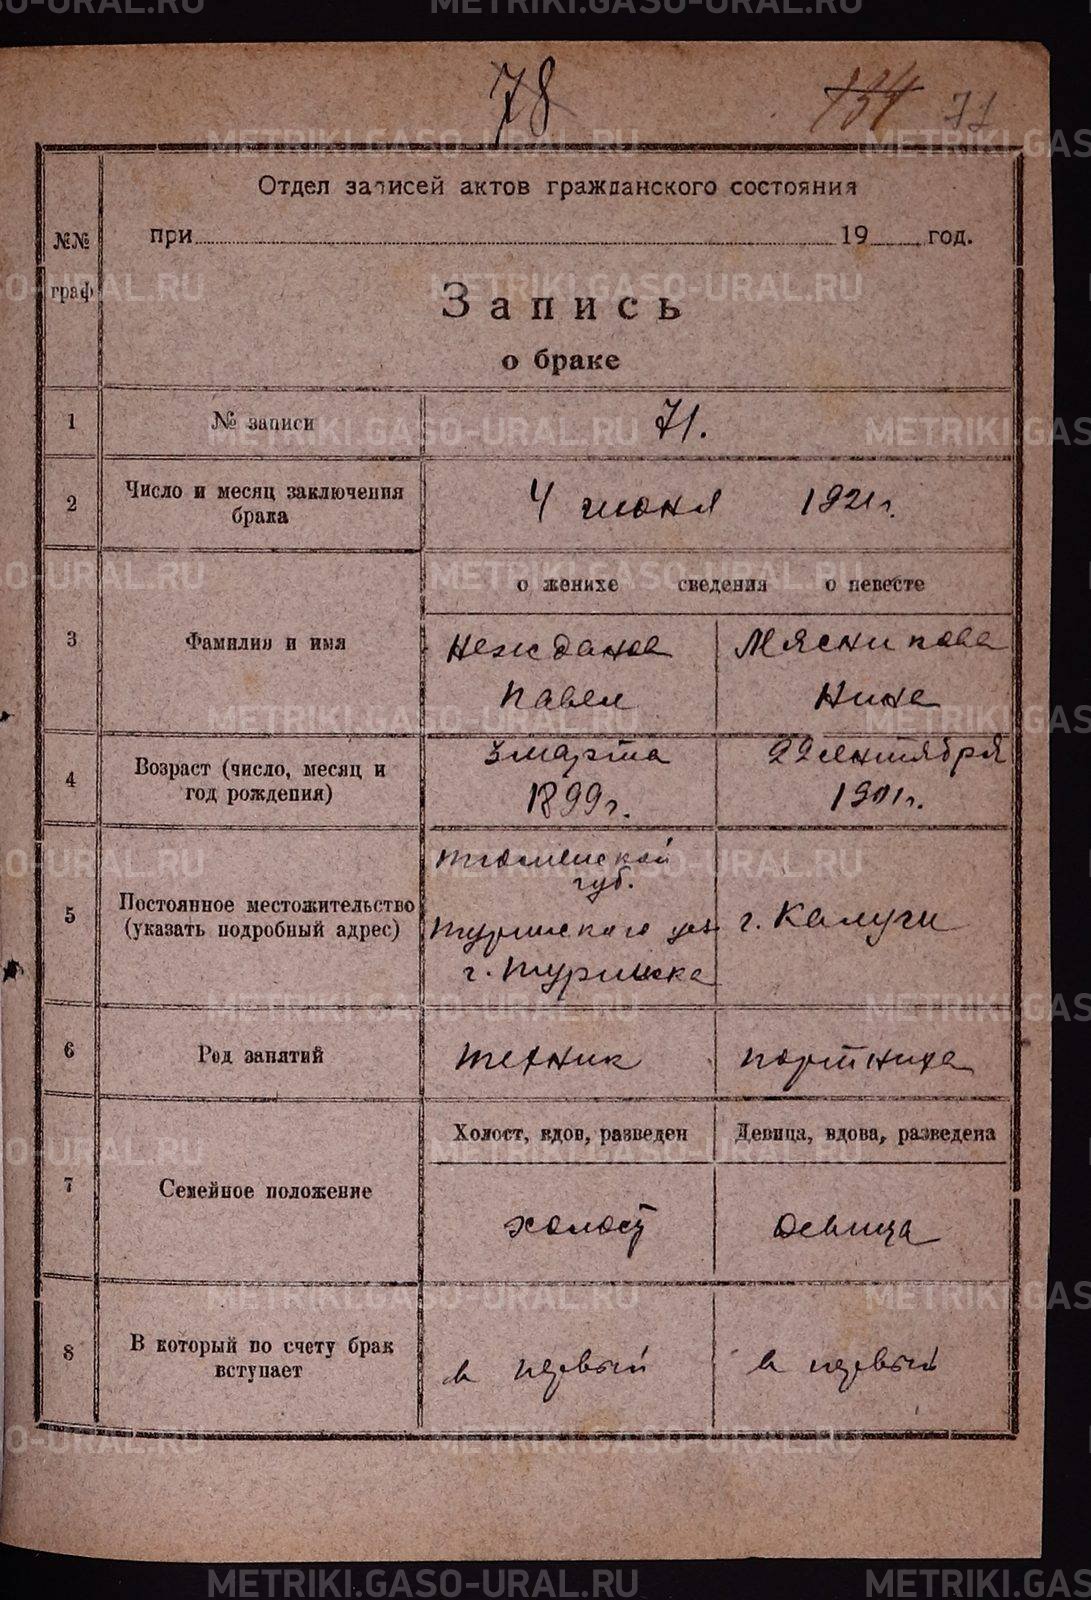 78
134 71
Отдел записей актов гражданского состояния
при 19 год.
№№ граф
Запись
о браке
1 № записи 71.
2 Число и месяц заключения брака 4 июня 1921 г.
о женихе сведения о невесте
3 Фамилия и имя Нежданов Мясникова
Павел Нина
4 Возраст (число, месяц и 3 марта 22 сентября
год рождения) 1899 г. 1901 г.
Тюменской
губ.
5 Постоянное местожительство
(указать подробный адрес) Туринского уез г. Калуги
г. Туринска
6 Род занятий техник портниха
Холост, вдов, разведен Девица, вдова, разведена
7 Семейное положение холост девица
8 В который по счету брак вступает в первый в первый
METRIKI.GASO-URAL.RU